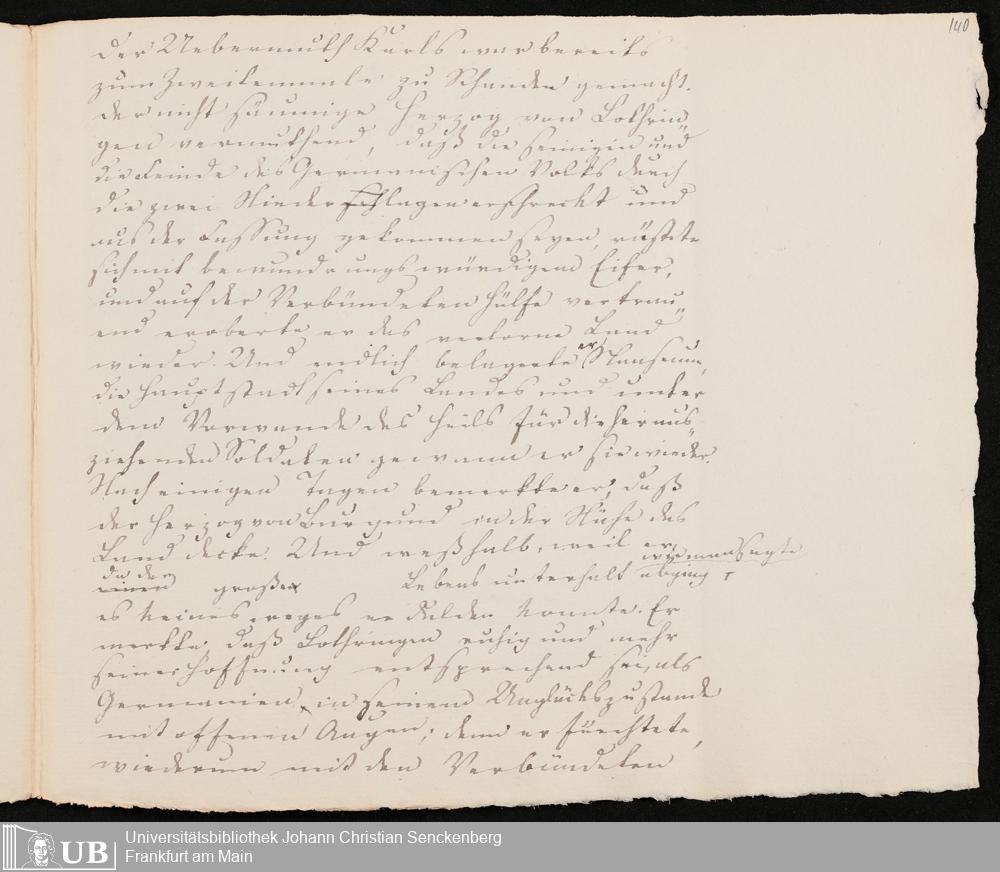 140
der Uebermuth Karls war bereits
zum Zweitenmale zu Schanden gemacht.
der nicht säumige Herzog von Lothrin„
gen vermuthend, daß die seinigen und
die Feinde des Germanischen Volks durch
die zwei Niederschlagen erschreckt und
aus der Fassung gekommen seyen, rüstete
sich mit bewundrungswürdigem Eifer,
und auf der Verbündeten Hülfe vertrau„
end eroberte er das verlorne Land
wieder. Und endlich belagerte er
die Hauptstadt seines Landes und unter
dem Vorwande des Heils für die heraus„
ziehenden Soldaten gewann er sie wieder.
Nach einigen Tagen bemerkte er, daß
der Herzog von Burgund in der Nähe des
Land decke. Und weßhalb, weil er,
wie man sagte
die der
einen großen Lebens unterhalt abging
es keineswegs erdulden konnte. Er
merkte, daß Lothringen ruhig und mehr
seiner Hoffnung entsprechend sei, als
Germanien, in seinem Unglückszustande
mit offenen Augen; denn er fürchtete,
wiederum mit den Verbündeten
UB
Universitätsbibliothek Johann Christian Senckenberg
Frankfurt am Main